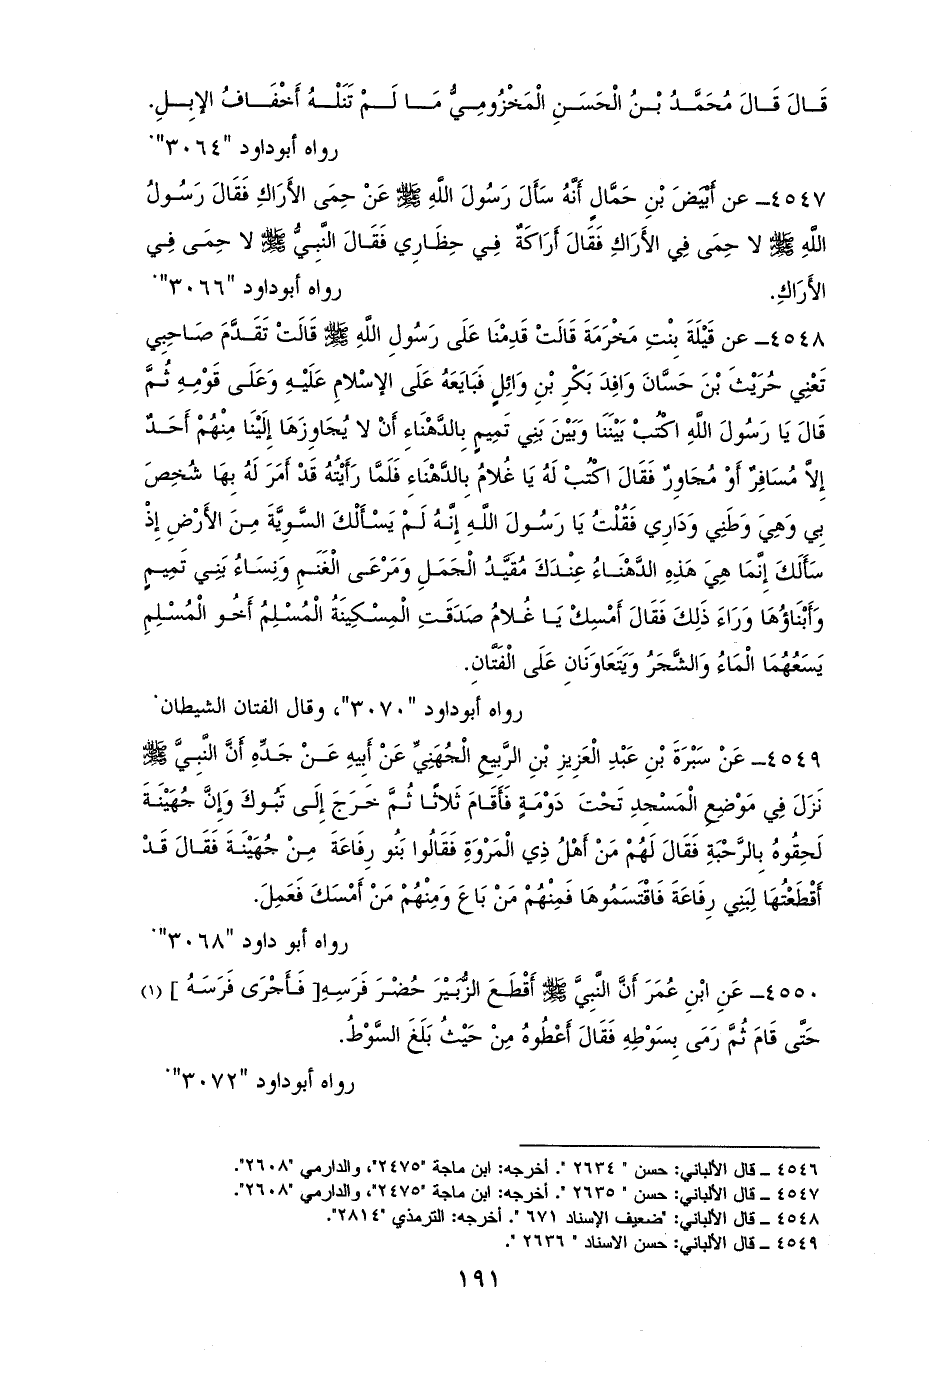 قَالَ قَالَ مُحَمَّدُ بْنُ الْحَسَنِ الْمَخْزُومِيُّ مَا لَمْ تَنَلْهُ أَخْفَافُ الإِبِلِ.
رواه أبوداود "٣٠٦٤".
٤٥٤٧ـ عن أَبْيَضَ بْنِ حَمَّالٍ أَنَّهُ سَأَلَ رَسُولَ اللَّهِ ﷺ عَنْ حِمَى الأَرَاكِ فَقَالَ رَسُولُ
اللَّهِ ﷺ لا حِمَى فِي الأَرَاكِ فَقَالَ أَرَاكَةٌ فِي حِظَارِي فَقَالَ النَّبِيُّ ﷺ لا حِمَى فِي
الأَرَاكِ. رواه أبوداود "٣٠٦٦".
٤٥٤٨ـ عن قَيْلَةَ بِنْتِ مَخْرَمَةَ قَالَتْ قَدِمْنَا عَلَى رَسُولِ اللَّهِ ﷺ قَالَتْ تَقَدَّمَ صَاحِبِي
تَعْنِي حُرَيْثَ بْنَ حَسَّانَ وَافِدَ بَكْرِ بْنِ وَائِلٍ فَبَايَعَهُ عَلَى الإِسْلامِ عَلَيْهِ وَعَلَى قَوْمِهِ ثُمَّ
قَالَ يَا رَسُولَ اللَّهِ اكْتُبْ بَيْنَنَا وَبَيْنَ بَنِي تَمِيمٍ بِالدَّهْنَاءِ أَنْ لا يُجَاوِزَهَا إِلَيْنَا مِنْهُمْ أَحَدٌ
إِلاَّ مُسَافِرٌ أَوْ مُجَاوِرٌ فَقَالَ اكْتُبْ لَهُ يَا غُلامُ بِالدَّهْنَاءِ فَلَمَّا رَأَيْتُهُ قَدْ أَمَرَ لَهُ بِهَا شُخِصَ
بِي وَهِيَ وَطَنِي وَدَارِي فَقُلْتُ يَا رَسُولَ اللَّهِ إِنَّهُ لَمْ يَسْأَلْكَ السَّوِيَّةَ مِنَ الأَرْضِ إِذْ
سَأَلَكَ إِنَّمَا هِيَ هَذِهِ الدَّهْنَاءُ عِنْدَكَ مُقَيَّدُ الْجَمَلِ وَمَرْعَى الْغَنَمِ وَنِسَاءُ بَنِي تَمِيمٍ
وَأَبْنَاؤُهَا وَرَاءَ ذَلِكَ فَقَالَ أَمْسِكْ يَا غُلامُ صَدَقَتِ الْمِسْكِينَةُ الْمُسْلِمُ أَخُو الْمُسْلِمِ
يَسَعُهُمَا الْمَاءُ وَالشَّجَرُ وَيَتَعَاوَنَانِ عَلَى الْفَتَّانِ.
رواه أبوداود "٣٠٧٠"، وقال الفتان الشيطان.
٤٥٤٩ـ عَنْ سَبْرَةَ بْنِ عَبْدِ الْعَزِيزِ بْنِ الرَّبِيعِ الْجُهَنِيِّ عَنْ أَبِيهِ عَنْ جَدِّهِ أَنَّ النَّبِيَّ ﷺ
نَزَلَ فِي مَوْضِعِ الْمَسْجِدِ تَحْتَ دَوْمَةٍ فَأَقَامَ ثَلاثًا ثُمَّ خَرَجَ إِلَى تَبُوكَ وَإِنَّ جُهَيْنَةَ
لَحِقُوهُ بِالرَّحْبَةِ فَقَالَ لَهُمْ مَنْ أَهْلُ ذِي الْمَرْوَةِ فَقَالُوا بَنُو رِفَاعَةَ مِنْ جُهَيْنَةَ فَقَالَ قَدْ
أَقْطَعْتُهَا لِبَنِي رِفَاعَةَ فَاقْتَسَمُوهَا فَمِنْهُمْ مَنْ بَاعَ وَمِنْهُمْ مَنْ أَمْسَكَ فَعَمِلَ.
رواه أبو داود "٣٠٦٨".
٤٥٥٠ـ عَنِ ابْنِ عُمَرَ أَنَّ النَّبِيَّ ﷺ أَقْطَعَ الزُّبَيْرَ حُضْرَ فَرَسِهِ[ فَأَجْرَى فَرَسَهُ ] (١)
حَتَّى قَامَ ثُمَّ رَمَى بِسَوْطِهِ فَقَالَ أَعْطُوهُ مِنْ حَيْثُ بَلَغَ السَّوْطُ.
رواه أبوداود "٣٠٧٢".
٤٥٤٦ ـ قال الألباني: حسن " ٢٦٣٤ ". أخرجه: ابن ماجة "٢٤٧٥"، والدارمي "٢٦٠٨".
٤٥٤٧ ـ قال الألباني: حسن " ٢٦٣٥ ". أخرجه: ابن ماجة "٢٤٧٥"، والدارمي "٢٦٠٨".
٤٥٤٨ ـ قال الألباني: "ضعيف الإسناد ٦٧١ ". أخرجه: الترمذي "٢٨١٤".
٤٥٤٩ ـ قال الألباني: حسن الاسناد " ٢٦٣٦ ".
١٩١